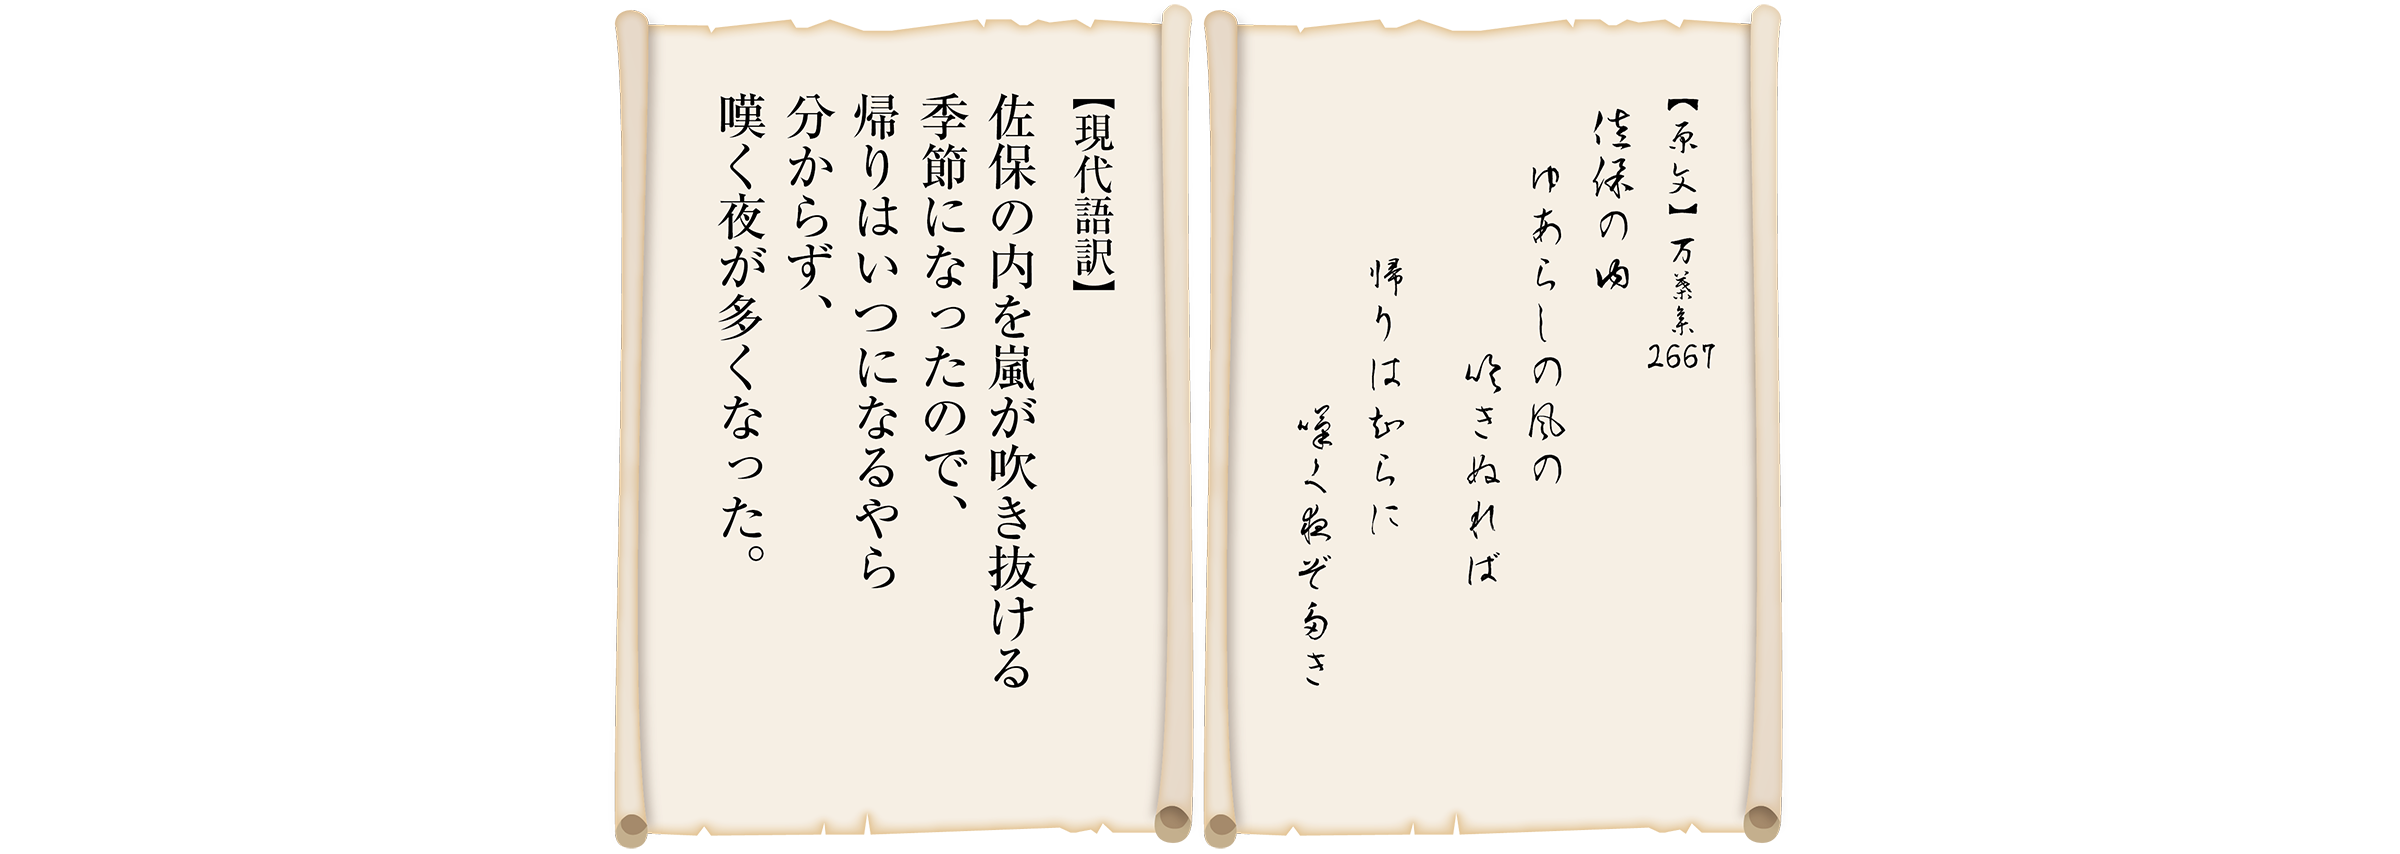 【原文】万葉集2667
佐保の内
ゆあらしの風の
吹きぬれば
帰りは知らに
嘆く夜ぞ多き
【現代語訳】
佐保の内を嵐が吹き抜ける
季節になったので、
帰りはいつになるやら
分からず、
嘆く夜が多くなった。